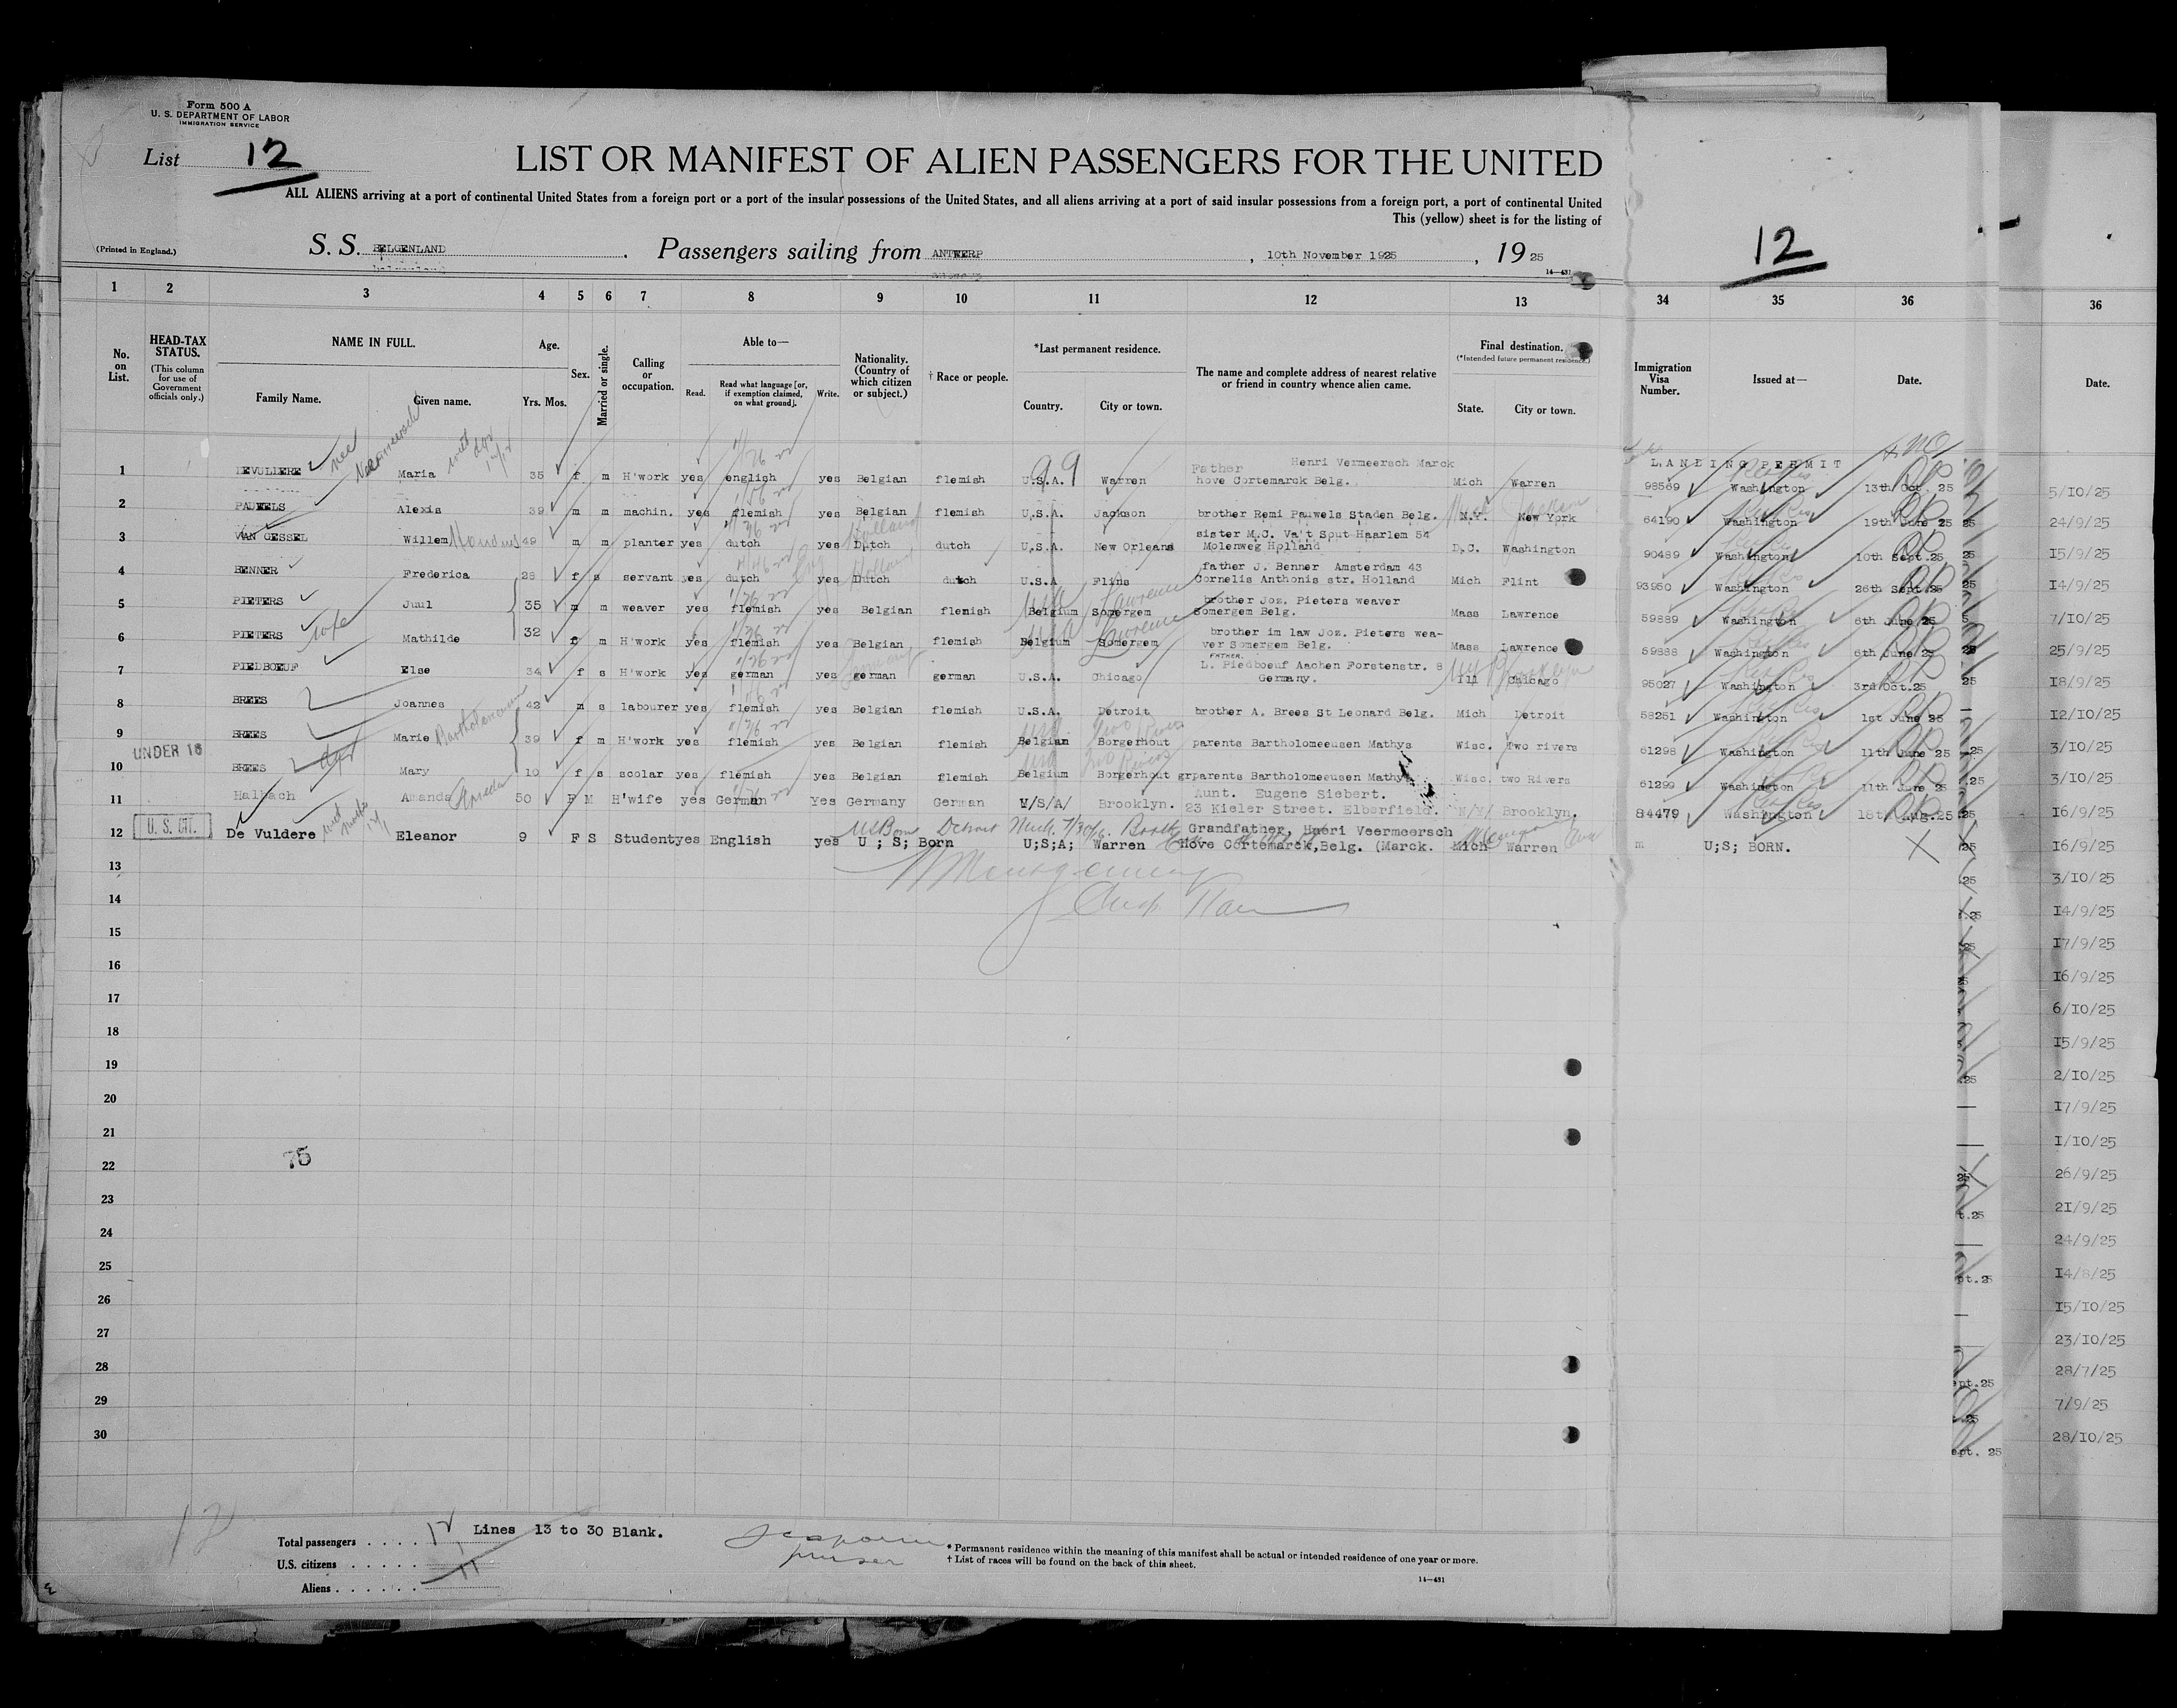 Form 500 A
U. S. DEPARTMENT OF LABOR
IMMIGRATION SERVICE
List 12
LIST OR MANIFEST OF ALIEN PASSENGERS FOR THE UNITED
ALL ALIENS arriving at a port of continental United States from a foreign port or a port of the insular possessions of the United States, and all aliens arriving at a port of said insular possessions from a foreign port, a port of continental United
This (yellow) sheet is for the listing of
(Printed in England.)
S. S. BELGENLAND Passengers sailing from ANTWERP, 10th November 1925, 1925
14—431
12
1 2 3 4 5 6 7 8 9 10 11 12 13 34 35 36 36
No. on List.
HEAD-TAX STATUS. (This column for use of Government officials only.)
NAME IN FULL.
Family Name. Given name.
Age. Yrs. Mos.
Sex.
Married or single.
Calling or occupation.
Able to—
Read. Read what language [or, if exemption claimed, on what ground]. Write.
Nationality. (Country of which citizen or subject.)
† Race or people.
*Last permanent residence.
Country. City or town.
The name and complete address of nearest relative or friend in country whence alien came.
Final destination. (*Intended future permanent residence.)
State. City or town.
Immigration Visa Number.
Issued at—
Date.
Date.
LANDING PERMIT
1 DEVULDERE nee Maria 35 f m H'work yes english yes Belgian flemish U.S.A. Warren Father Henri Vermeersch Marck hove Cortemarck Belg. Mich Warren 98569 Washington 13th Oct. 25
2 PAUWELS Alexis 39 m m machin. yes flemish yes Belgian flemish U.S.A. Jackson brother Remi Pauwels Staden Belg. N.Y. New York 64190 Washington 19th June 25
3 VAN GESSEL Willem 49 m m planter yes dutch yes Dutch dutch U.S.A. New Orleans sister M.C. Va't Sput Haarlem 54 Molenweg Holland D.C. Washington 90489 Washington 10th Sept.25
4 BENNER Frederica 28 f s servant yes dutch yes Dutch dutch U.S.A Flins father J. Benner Amsterdam 43 Cornelis Anthonis str. Holland Mich Flint 93950 Washington 26th Sept.25
5 PIETERS Juul 35 m m weaver yes flemish yes Belgian flemish Belgium Somergem Lawrence brother Joz. Pieters weaver Somergem Belg. Mass Lawrence 59889 Washington 6th June 25
6 PIETERS wife Mathilde 32 f m H'work yes flemish yes Belgian flemish Belgium Somergem Lawrence brother im law Joz. Pieters wea- ver Somergem Belg. Mass Lawrence 59888 Washington 6th June 25
7 PIEDBOEUF Else 34 f s H'work yes german yes german german U.S.A. Chicago FATHER. L. Piedboeuf Aachen Forstenstr. 8 Germany. Ill Chicago 95027 Washington 3rd Oct.25
8 BREES Joannes 42 m s labourer yes flemish yes Belgian flemish U.S.A. Detroit brother A. Brees St Leonard Belg. Mich Detroit 58251 Washington 1st June 25
9 BREES Marie 39 f m H'work yes flemish yes Belgian flemish Belgian Borgerhout parents Bartholomeeusen Mathys Wisc. Two rivers 61298 Washington 11th June 25
UNDER 16
10 BREES Mary 10 f s scolar yes flemish yes Belgian flemish Belgium Borgerhout grparents Bartholomeeusen Mathys Wisc. two Rivers 61299 Washington 11th June 25
11 Halbach Amanda 50 F M H'wife yes German Yes Germany German U/S/A/ Brooklyn. Aunt. Eugene Siebert. 23 Kieler Street. Elberfield. N/Y/ Brooklyn. 84479 Washington 18th Aug.25
U. S. CIT.
12 De Vuldere Eleanor 9 F S Student yes English yes U ; S; Born U;S;A; Warren Grandfather, Henri Veermeersch Hove Cortemarck,Belg. (Marck. Mich Warren U;S; BORN.
13
14
15
16
17
18
19
20
21
22
23
24
25
26
27
28
29
30
75
5/10/25
24/9/25
15/9/25
14/9/25
7/10/25
25/9/25
18/9/25
12/10/25
3/10/25
3/10/25
16/9/25
16/9/25
3/10/25
14/9/25
17/9/25
16/9/25
6/10/25
15/9/25
2/10/25
17/9/25
1/10/25
26/9/25
21/9/25
24/9/25
14/8/25
15/10/25
23/10/25
28/7/25
7/9/25
28/10/25
12
Total passengers . . . . 12 Lines 13 to 30 Blank.
U.S. citizens . . . . .
Aliens . . . . . . 11
purser
* Permanent residence within the meaning of this manifest shall be actual or intended residence of one year or more.
† List of races will be found on the back of this sheet.
14—431